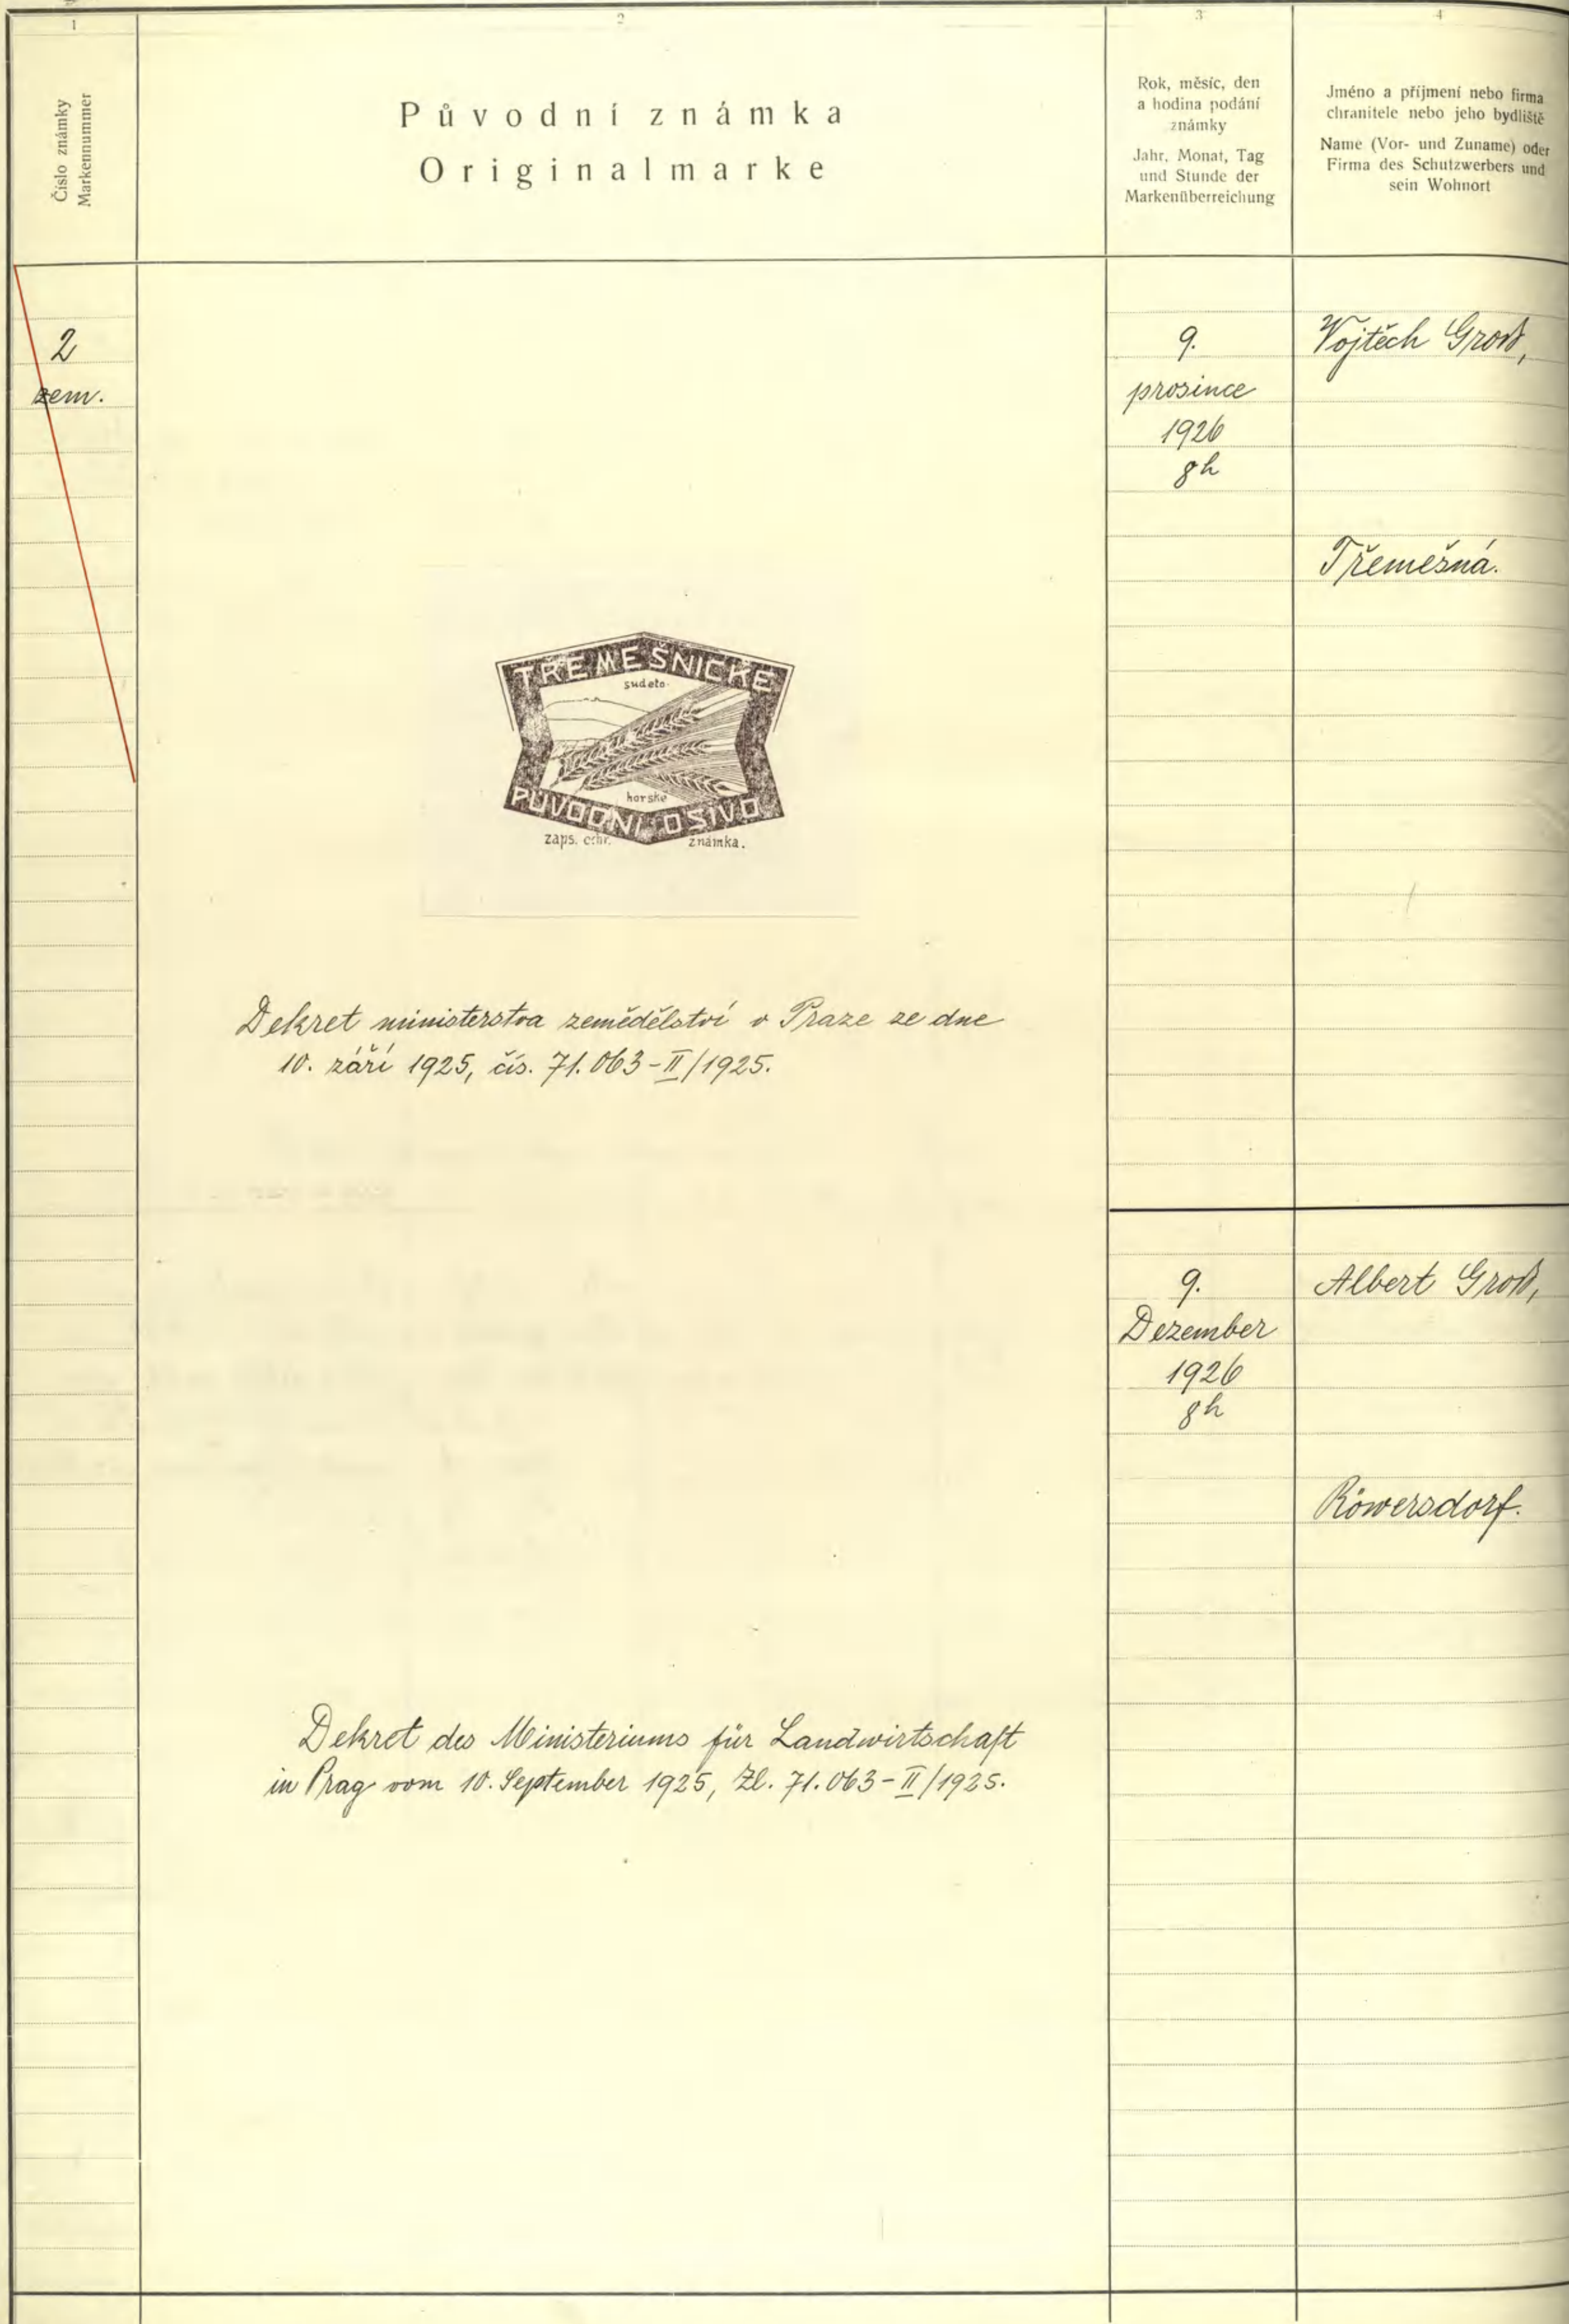 1
2
3
4
Číslo známky
Markennummer
Původní známka
Originalmarke
Rok, měsíc, den
a hodina podání
známky
Jahr, Monat, Tag
und Stunde der
Markenüberreichung
Jméno a příjmení nebo firma
chranitele nebo jeho bydliště
Name (Vor- und Zuname) oder
Firma des Schutzwerbers und
sein Wohnort
2
zem.
9.
prosince
1926
8h
Vojtěch Groß,
Třemešná.
TŘEMEŠNICKÉ
sudeto-
horské
PŮVODNÍ OSIVO
zaps. ochr. známka.
Dekret ministerstva zemědělství v Praze ze dne
10. září 1925, čís. 71.063-II/1925.
9.
Dezember
1926
8h
Albert Groß,
Röwersdorf.
Dekret des Ministeriums für Landwirtschaft
in Prag vom 10. September 1925, Zl. 71.063-II/1925.